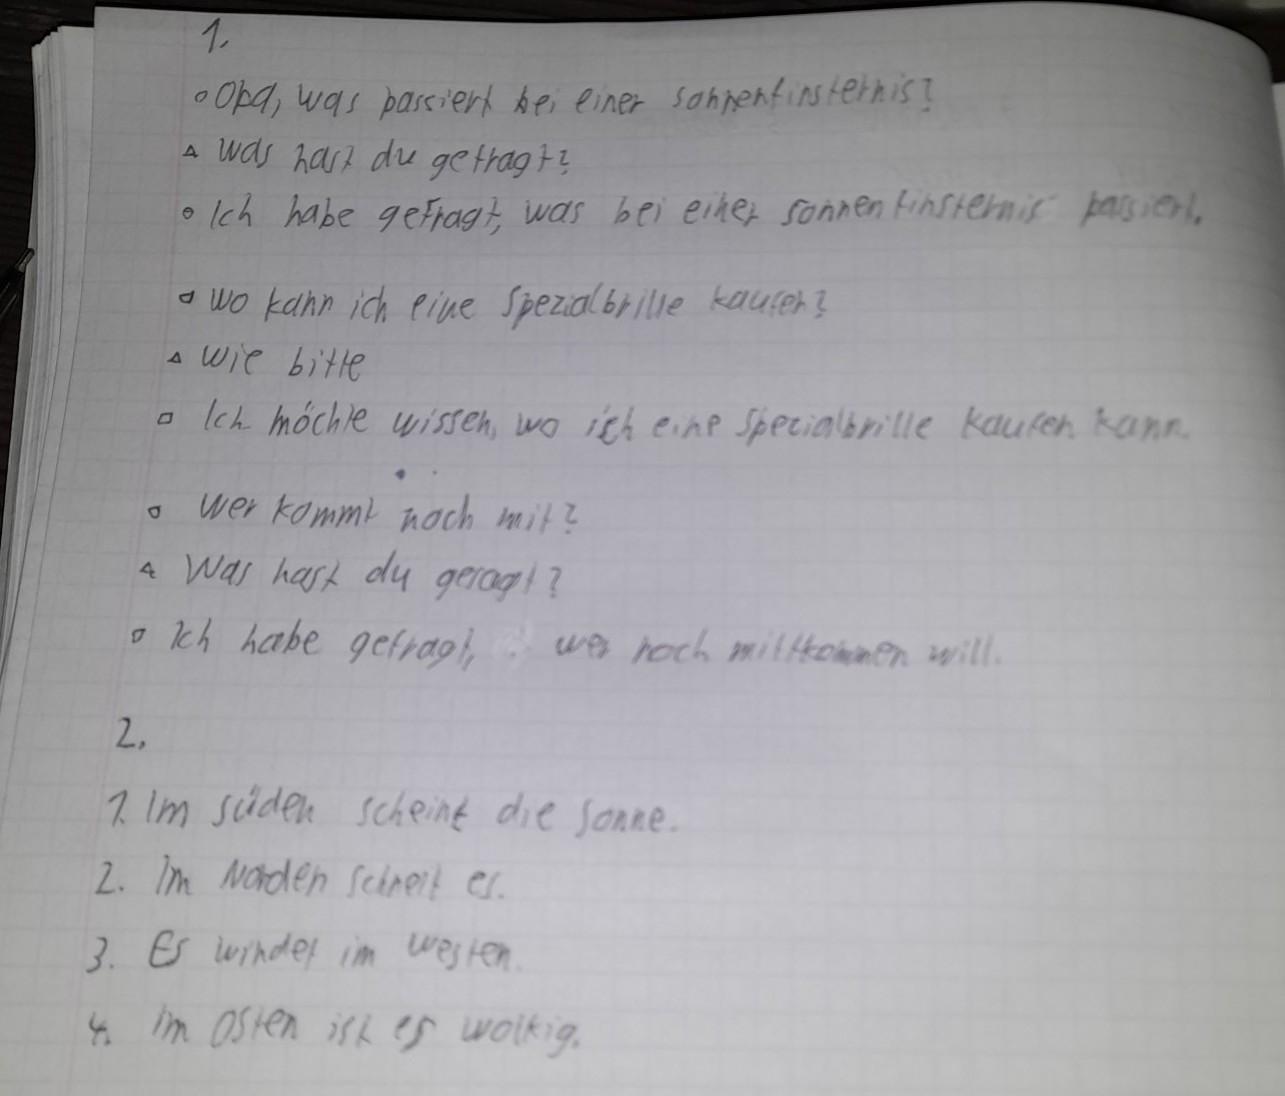 1.
o Opa, was passiert bei einer sonnenfinsternis?
△ Was hast du gefragt?
o Ich habe gefragt, was bei einer sonnenfinsternis passiert.
o wo kann ich eine Spezialbrille kaufen?
△ wie bitte
□ Ich möchte wissen, wo ich eine Spezialbrille kaufen kann.
o wer kommt noch mit?
△ Was hast du gesagt?
o Ich habe gefragt, wer noch mittkommen will.
2.
1. Im süden scheint die Sonne.
2. Im Norden schneit es.
3. Es windet im westen.
4. im Osten ist es wolkig.